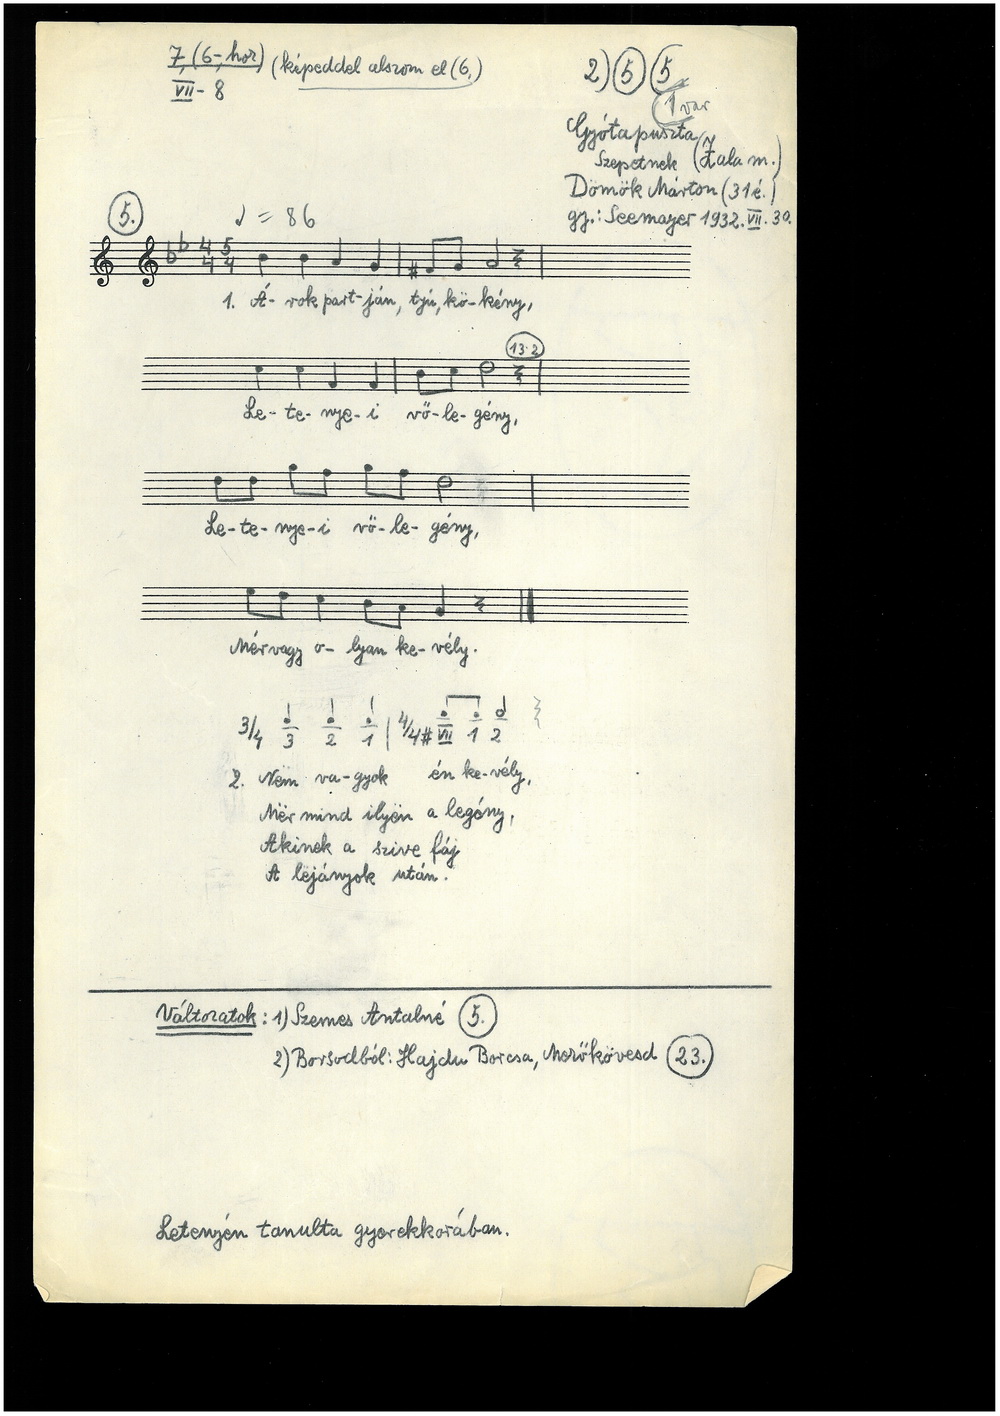 7, (6-, hor) (képeddel alszom el (6,)
VII - 8
2) 5 5
1 var
Gyótapuszta
Szepetnek (Zala m.)
Dömök Márton (31 é.)
gy.: Seemayer 1932. VII. 30.
5. ♩ = 86
4/4 5/4
1. Á- rok part-ján, tyú, kö-kény,
13·2
Le- te- nye- i vö- le- gény,
Le- te- nye- i vö- le- gény,
Mér vagy o- lyan ke- vély.
3/4 3 2 1 | 4/4 # VII 1 2
2. Nem va-gyok én ke-vély,
Mër mind ilyën a legény,
Akinek a szive fáj
A lejányok után.
Változatok: 1) Szemes Antalné 5.
2) Borsodból: Hajdu Borcsa, Mezőkövesd 23.
Letenyén tanulta gyerekkorában.